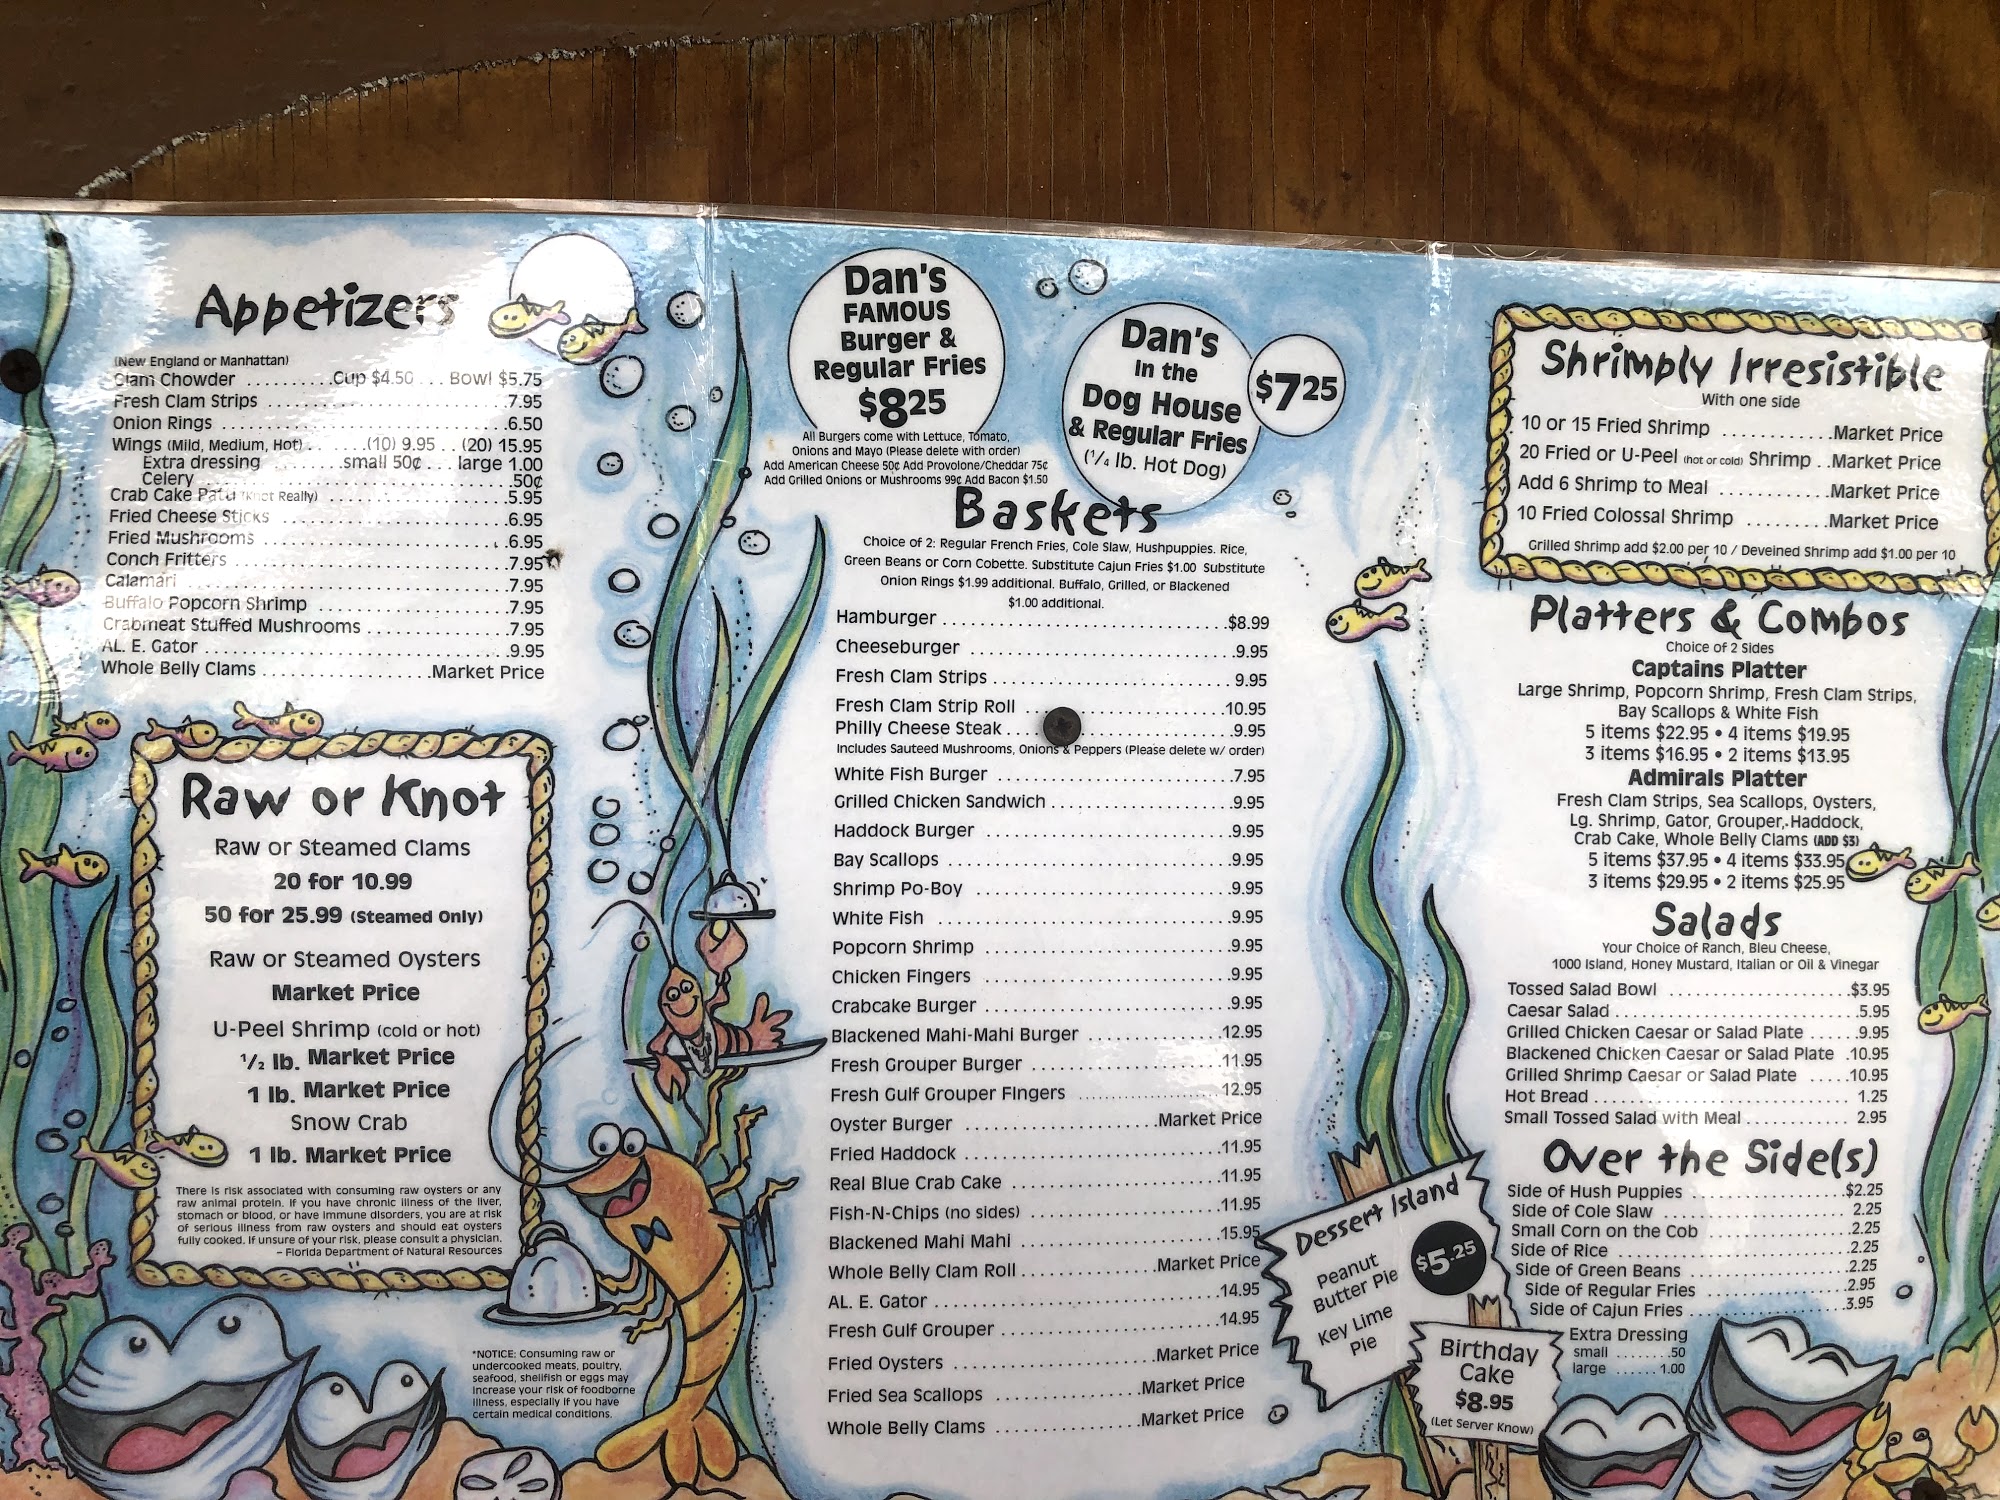 Appetizers
(New England or Manhattan)
Clam Chowder ..........Cup $4.50 ... Bowl $5.75
Fresh Clam Strips ..............................7.95
Onion Rings ..............................6.50
Wings (Mild, Medium, Hot) ........(10) 9.95 .. (20) 15.95
Extra dressing ........small 50¢ ... large 1.00
Celery ..............................50¢
Crab Cake Patti (Knot Really) ..............................5.95
Fried Cheese Sticks ..............................6.95
Fried Mushrooms ..............................6.95
Conch Fritters ..............................7.95
Calamari ..............................7.95
Buffalo Popcorn Shrimp ..............................7.95
Crabmeat Stuffed Mushrooms ....................7.95
AL. E. Gator ..............................9.95
Whole Belly Clams ....................Market Price
Raw or Knot
Raw or Steamed Clams
20 for 10.99
50 for 25.99 (Steamed Only)
Raw or Steamed Oysters
Market Price
U-Peel Shrimp (cold or hot)
1/2 lb. Market Price
1 lb. Market Price
Snow Crab
1 lb. Market Price
There is risk associated with consuming raw oysters or any
raw animal protein. If you have chronic illness of the liver,
stomach or blood, or have immune disorders, you are at risk
of serious illness from raw oysters and should eat oysters
fully cooked. If unsure of your risk, please consult a physician.
– Florida Department of Natural Resources
*NOTICE: Consuming raw or
undercooked meats, poultry,
seafood, shellfish or eggs may
increase your risk of foodborne
illness, especially if you have
certain medical conditions.
Dan's
FAMOUS
Burger &
Regular Fries
$8.25
All Burgers come with Lettuce, Tomato,
Onions and Mayo (Please delete with order)
Add American Cheese 50¢ Add Provolone/Cheddar 75¢
Add Grilled Onions or Mushrooms 99¢ Add Bacon $1.50
Dan's
In the
Dog House
& Regular Fries
(1/4 lb. Hot Dog)
$7.25
Baskets
Choice of 2: Regular French Fries, Cole Slaw, Hushpuppies. Rice,
Green Beans or Corn Cobette. Substitute Cajun Fries $1.00 Substitute
Onion Rings $1.99 additional. Buffalo, Grilled, or Blackened
$1.00 additional.
Hamburger ..............................$8.99
Cheeseburger ..............................9.95
Fresh Clam Strips ..............................9.95
Fresh Clam Strip Roll ....................10.95
Philly Cheese Steak ..............................9.95
Includes Sauteed Mushrooms, Onions & Peppers (Please delete w/ order)
White Fish Burger ..............................7.95
Grilled Chicken Sandwich ....................9.95
Haddock Burger ..............................9.95
Bay Scallops ..............................9.95
Shrimp Po-Boy ..............................9.95
White Fish ..............................9.95
Popcorn Shrimp ..............................9.95
Chicken Fingers ..............................9.95
Crabcake Burger ..............................9.95
Blackened Mahi-Mahi Burger ....................12.95
Fresh Grouper Burger ....................11.95
Fresh Gulf Grouper Fingers ....................12.95
Oyster Burger ....................Market Price
Fried Haddock ..............................11.95
Real Blue Crab Cake ....................11.95
Fish-N-Chips (no sides) ....................11.95
Blackened Mahi Mahi ....................15.95
Whole Belly Clam Roll ..............Market Price
AL. E. Gator ..............................14.95
Fresh Gulf Grouper ....................14.95
Fried Oysters ....................Market Price
Fried Sea Scallops ..............Market Price
Whole Belly Clams ..............Market Price
Dessert Island
$5.25
Peanut
Butter Pie
Key Lime
Pie
Birthday
Cake
$8.95
(Let Server Know)
Shrimply Irresistible
With one side
10 or 15 Fried Shrimp ............Market Price
20 Fried or U-Peel (hot or cold) Shrimp ..Market Price
Add 6 Shrimp to Meal ............Market Price
10 Fried Colossal Shrimp .........Market Price
Grilled Shrimp add $2.00 per 10 / Deveined Shrimp add $1.00 per 10
Platters & Combos
Choice of 2 Sides
Captains Platter
Large Shrimp, Popcorn Shrimp, Fresh Clam Strips,
Bay Scallops & White Fish
5 items $22.95 • 4 items $19.95
3 items $16.95 • 2 items $13.95
Admirals Platter
Fresh Clam Strips, Sea Scallops, Oysters,
Lg. Shrimp, Gator, Grouper, Haddock,
Crab Cake, Whole Belly Clams (ADD $3)
5 items $37.95 • 4 items $33.95
3 items $29.95 • 2 items $25.95
Salads
Your Choice of Ranch, Bleu Cheese,
1000 Island, Honey Mustard, Italian or Oil & Vinegar
Tossed Salad Bowl ....................$3.95
Caesar Salad ..............................5.95
Grilled Chicken Caesar or Salad Plate ......9.95
Blackened Chicken Caesar or Salad Plate .10.95
Grilled Shrimp Caesar or Salad Plate .....10.95
Hot Bread .............................. 1.25
Small Tossed Salad with Meal ........... 2.95
Over the Side(s)
Side of Hush Puppies ....................$2.25
Side of Cole Slaw .................... 2.25
Small Corn on the Cob ....................2.25
Side of Rice ..............................2.25
Side of Green Beans ....................2.25
Side of Regular Fries ....................2.95
Side of Cajun Fries ....................3.95
Extra Dressing
small ........50
large ...... 1.00